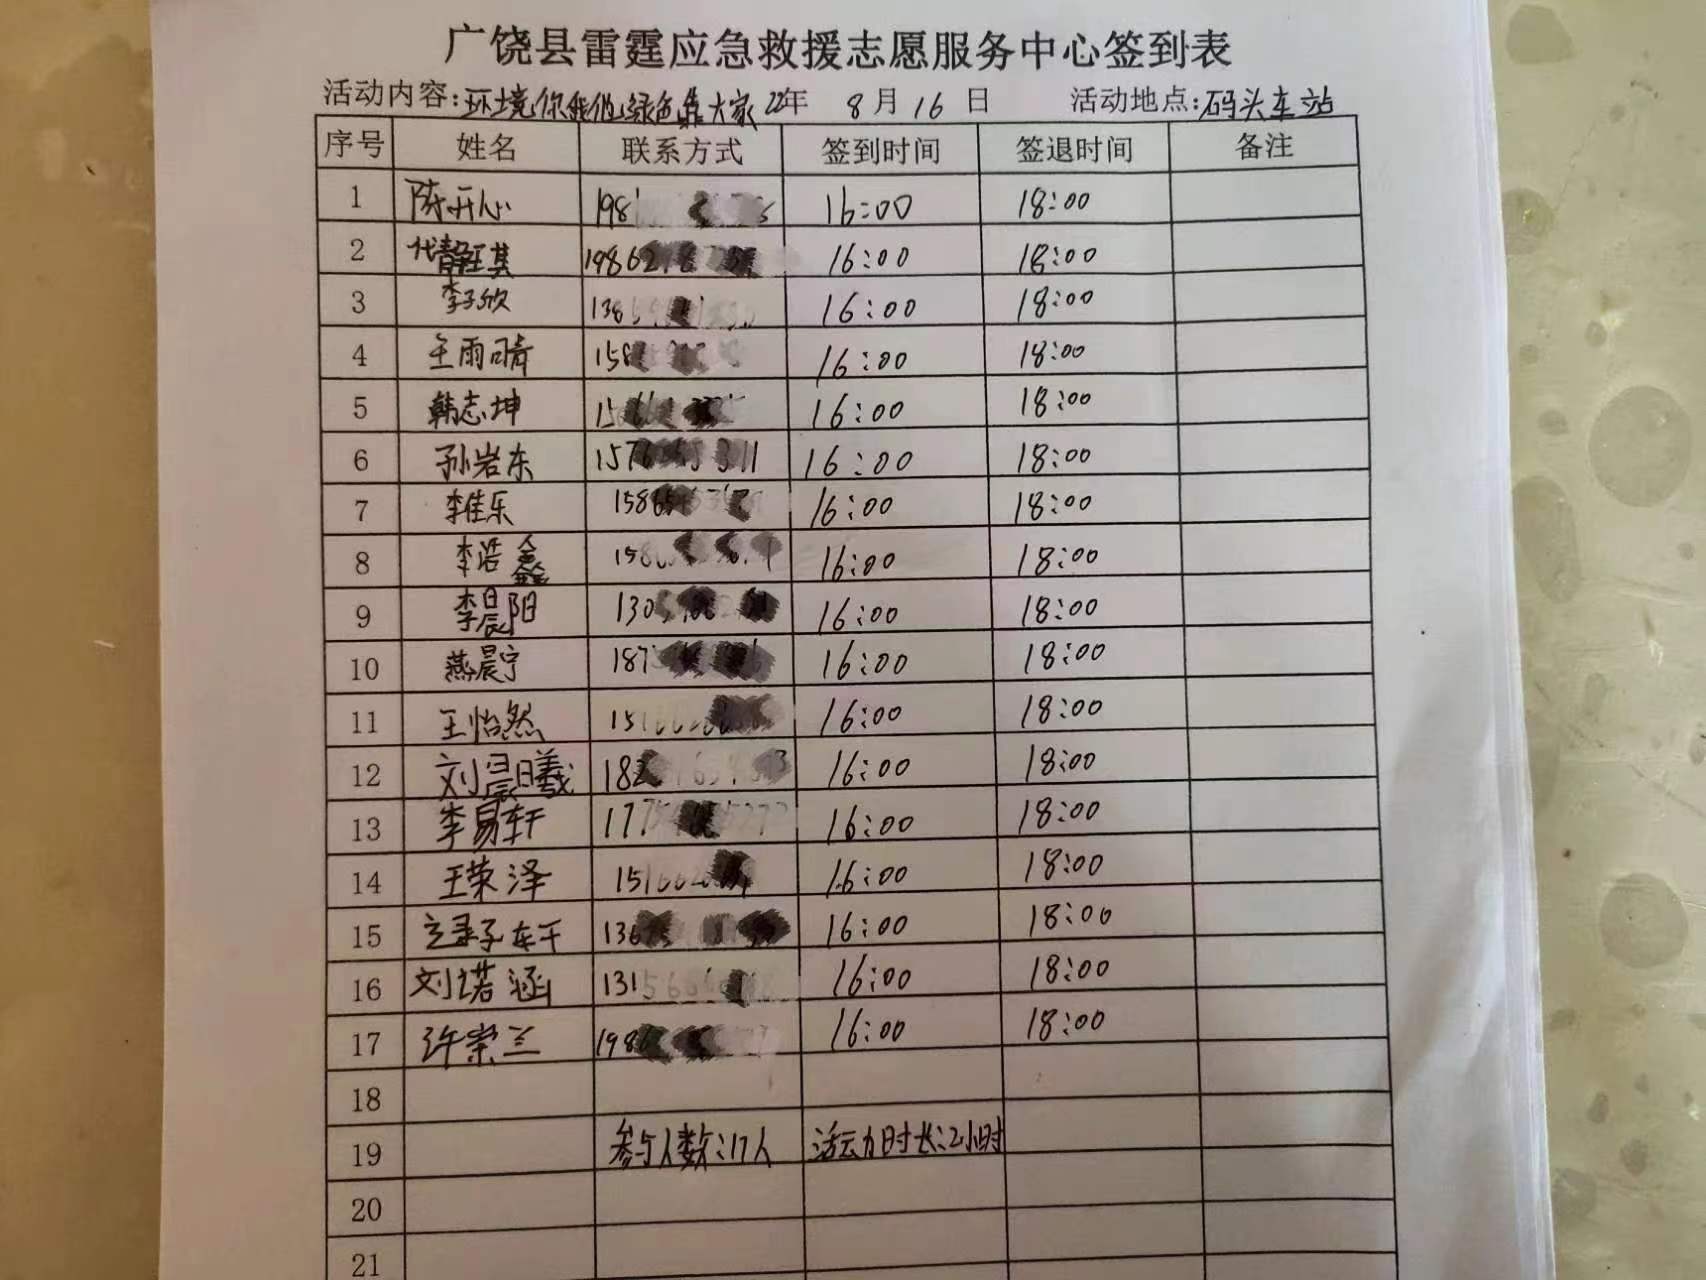 广饶县雷霆应急救援志愿服务中心签到表
活动内容:环境你我他绿色靠大家 22年 8月16日 活动地点:码头车站
序号 姓名 联系方式 签到时间 签退时间 备注
1 陈开心 198 16:00 18:00
2 代静琪 1986 16:00 18:00
3 李子欣 138 16:00 18:00
4 王雨晴 158 16:00 18:00
5 韩志坤 15 16:00 18:00
6 孙岩东 157 16:00 18:00
7 李佳乐 1586 16:00 18:00
8 李浩鑫 158 16:00 18:00
9 李晨阳 130 16:00 18:00
10 燕晨宁 187 16:00 18:00
11 王怡然 151 16:00 18:00
12 刘晨曦 182 16:00 18:00
13 李易轩 177 16:00 18:00
14 王荣泽 151 16:00 18:00
15 136 16:00 18:00
16 刘诺涵 131 16:00 18:00
17 许崇兰 198 16:00 18:00
18
19 参与人数:17人 活动时长:2小时
20
21